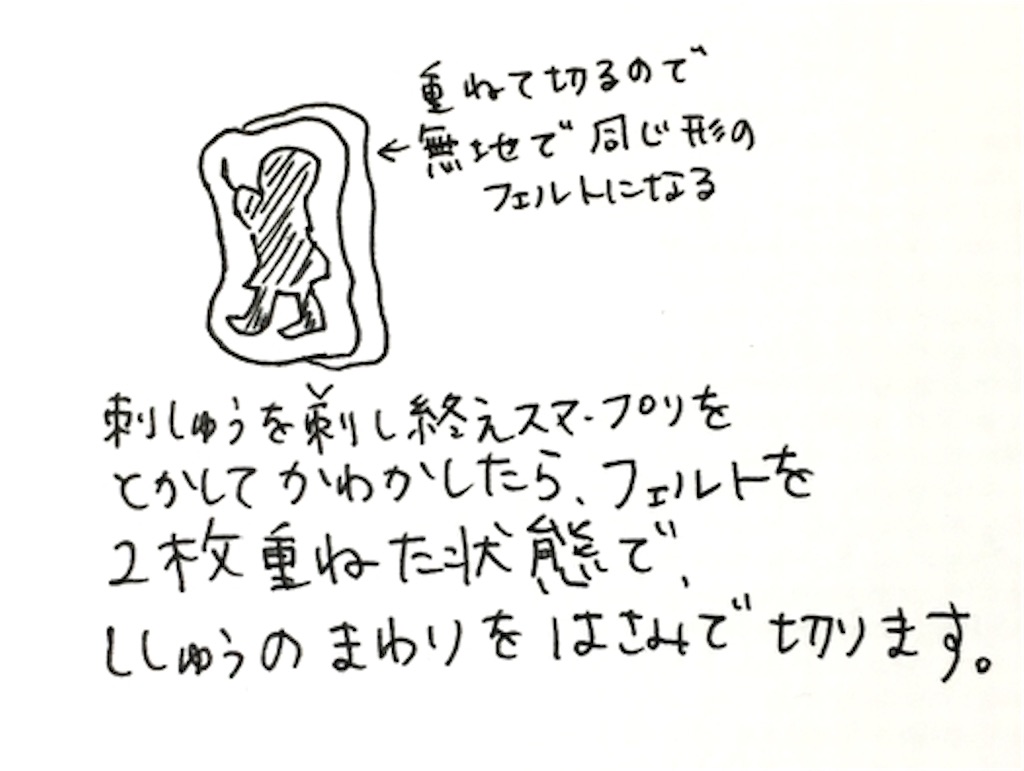 重ねて切るので
←無地で同じ形の
フェルトになる
刺しゅうを刺し終えスマ・プリを
とかしてかわかしたら、フェルトを
2枚重ねた状態で、
ししゅうのまわりをはさみで切ります。